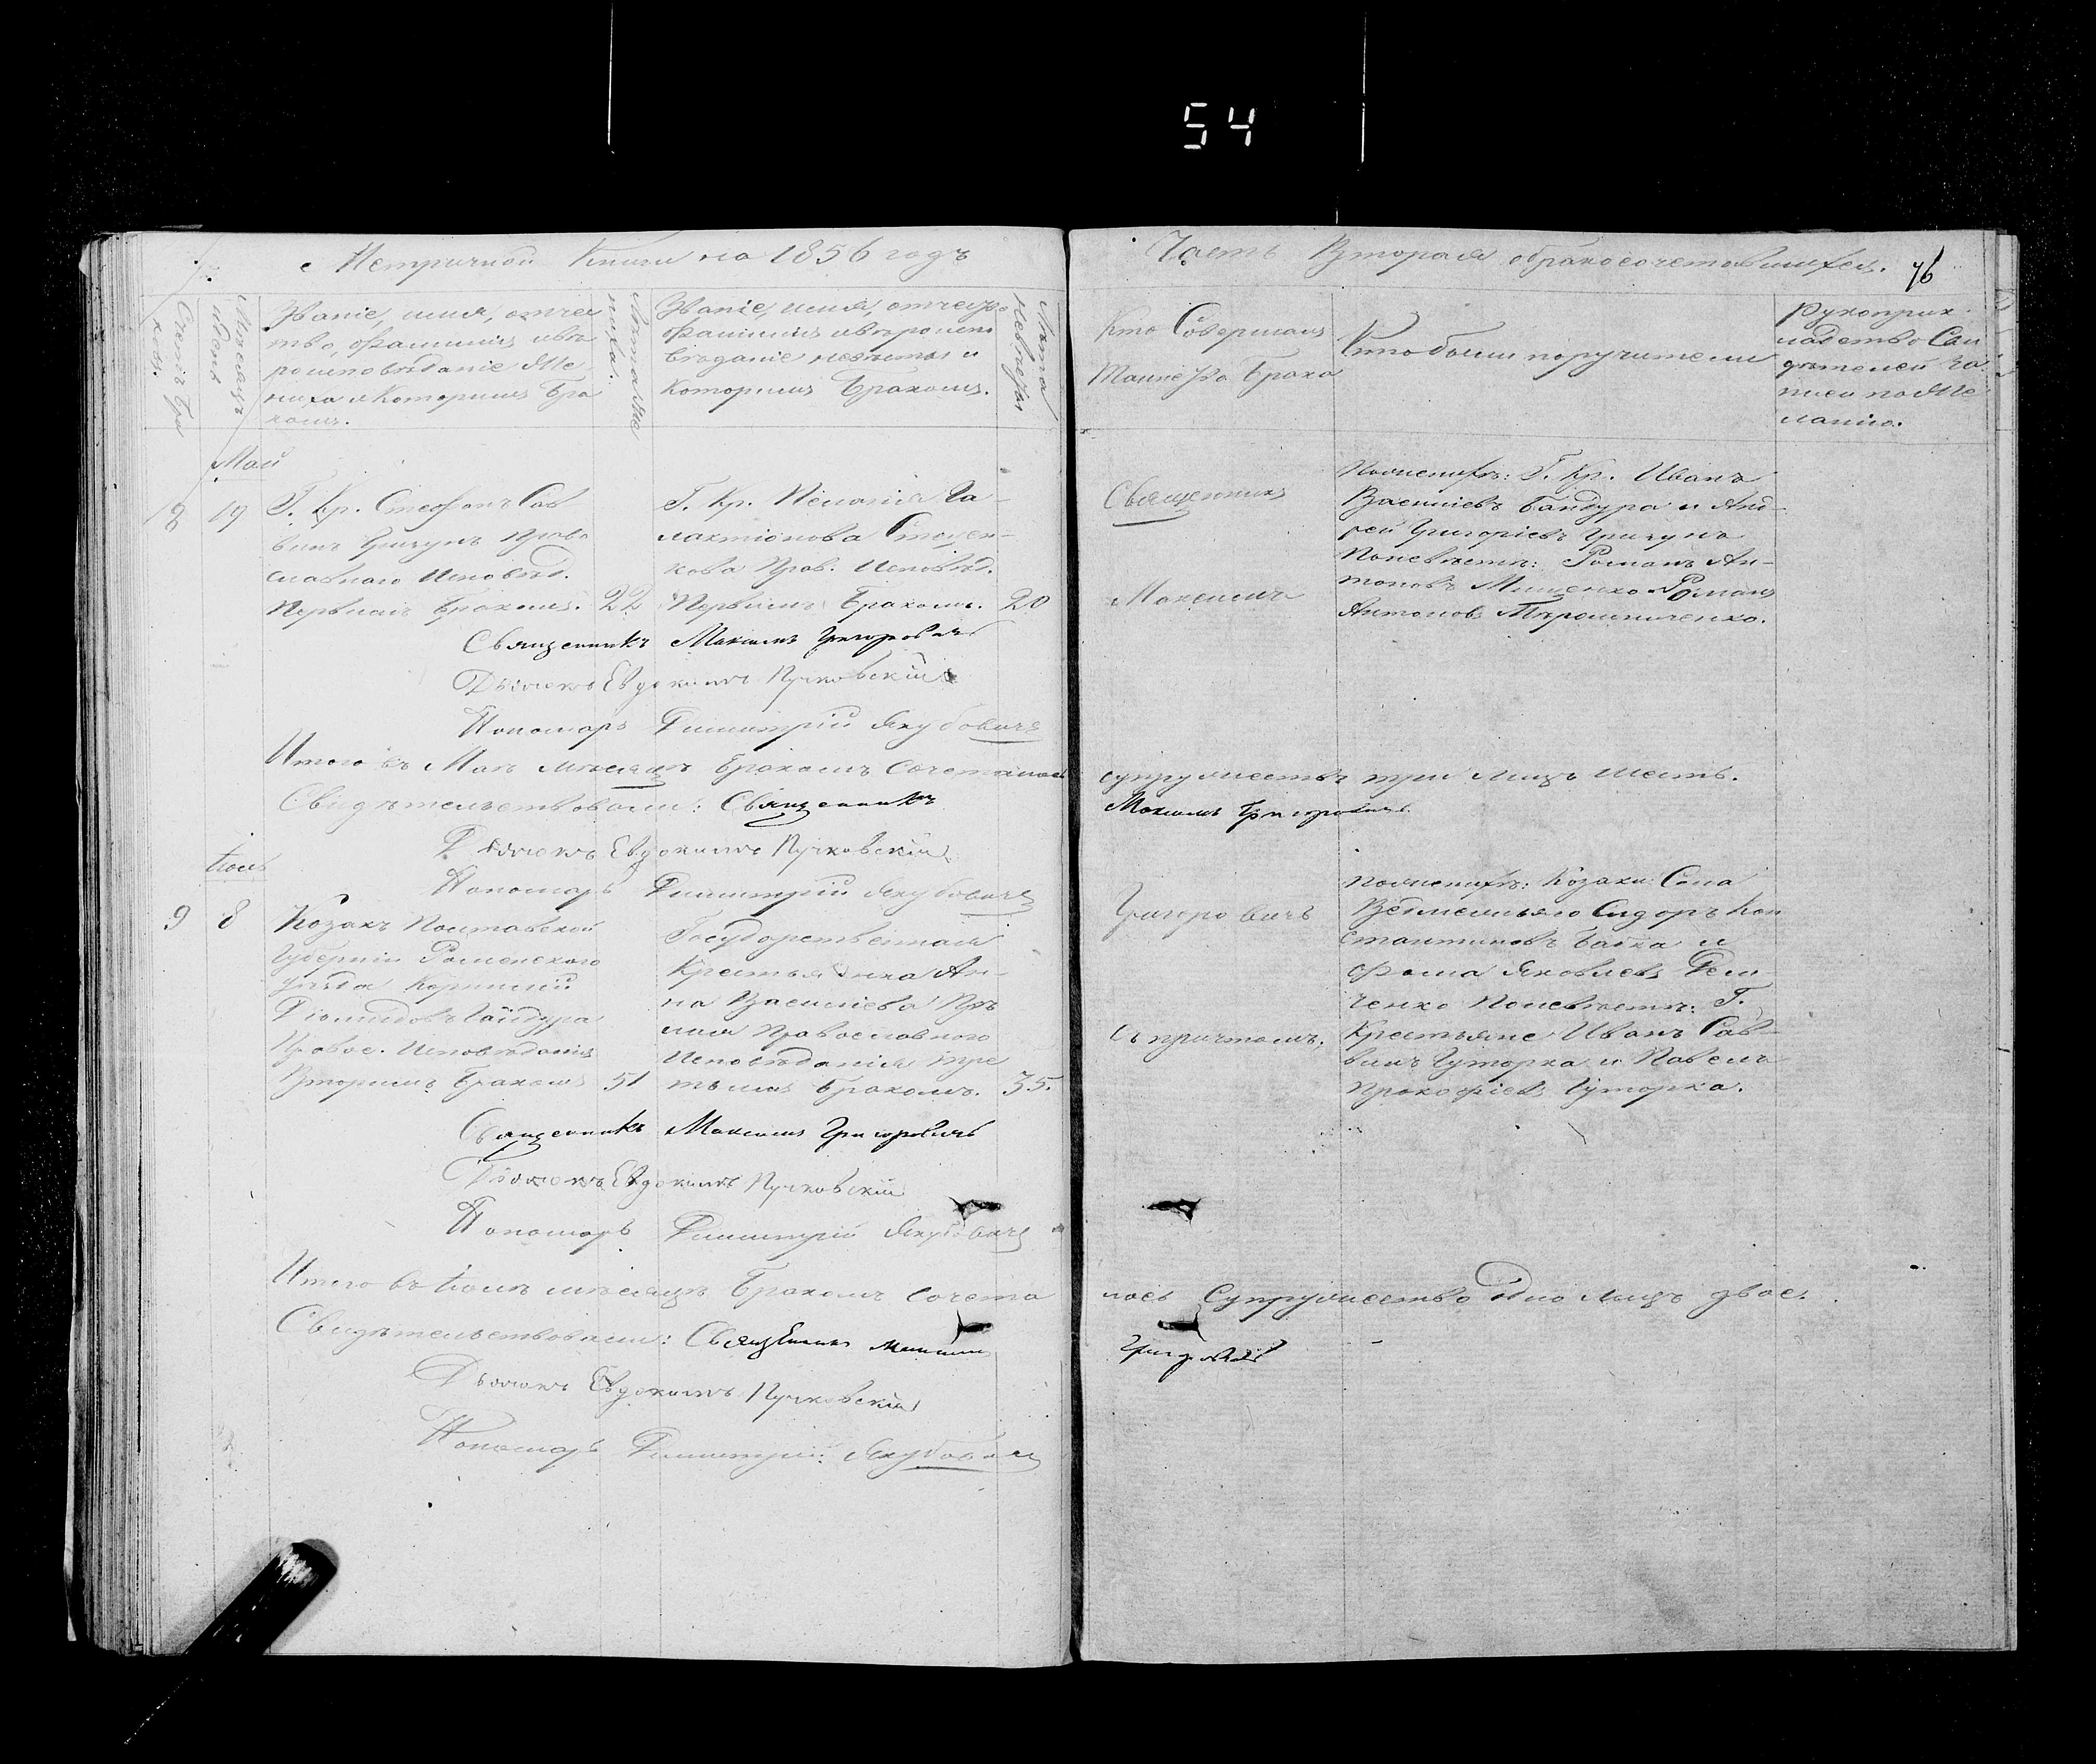 54
Метричной Книги на 1856 годъ
Часть Вторая о бракосочетавшихся.
76
Счетъ бра
ковъ.
Мѣсяцъ
и день
Званіе, имя, отчес
тво, фамилия и вѣ
роисповѣданіе Же
ниха и которимъ бра
комъ.
Лѣта же
ниха.
Званіе, имя, отчество
фамилия и вѣроиспо
вѣданіе невѣсты и
которимъ бракомъ.
Лѣта
невѣсты
Кто Совершалъ
Таинство Брака
Кто были поручители
Рукоприк
ладство Сви
дѣтелей за
писи по же
ланію.
Май
8
19
Г. Кр. Стефанъ Сав
винъ Гричунъ Право
славнаго Исповѣд.
Первымъ бракомъ.
22
Г. Кр. Га-
лактіонова Стецен-
кова Прав. Исповѣд.
Первымъ бракомъ.
20
Священникъ
Максимъ
По женихѣ: Г. Кр. Иванъ
Василіевъ Бандура и Анд-
рей Григоріевъ Гричунъ
По невѣстѣ: Романъ Ан-
тоновъ Мищенко Романъ
Антоновъ Мирошниченко.
Священникъ Максимъ Григоровичъ
Дьячокъ Евдокимъ Пучковскій
Пономарь Димитрій Якубовичъ
Итого въ Маѣ мѣсяцѣ бракомъ сочеталось
супружествъ три лицъ шесть.
Свидѣтельствовали: Священникъ
Максимъ Григоровичъ
Дьячокъ Евдокимъ Пучковскій
Пономарь Димитрій Якубовичъ
Іюль
9
8
Козакъ Полтавской
Губерніи Роменского
уѣзда Корнилій
Діомидовъ Гайдура
Правос. Исповѣданія
Вторимъ бракомъ
51
Государственная
Крестьянка Ан-
на Василіева
Православного
Исповѣданія тре
тьимъ бракомъ.
35.
Григоровичъ
съ причтомъ.
По женихѣ: Козаки Села
Сидоръ Кон
стантиновъ Бабка и
Фома Яковлевъ Дем
ченко По невѣстѣ: Г.
Крестьяне Иванъ Сав-
винъ Гуторка и Павелъ
Прокофіевъ Гуторка.
Священникъ Максимъ Григоровичъ
Дьячокъ Евдокимъ Пучковскій
Пономарь Димитрій Якубовичъ
Итого въ Іюлѣ мѣсяцѣ бракомъ сочета
лось Супружество одно лицъ двое.
Свидѣтельствовали: Священникъ Максимъ
Григоровичъ
Дьячокъ Евдокимъ Пучковскій
Пономарь Димитрій Якубовичъ